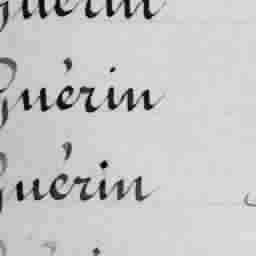 Guérin
Guérin
Guérin